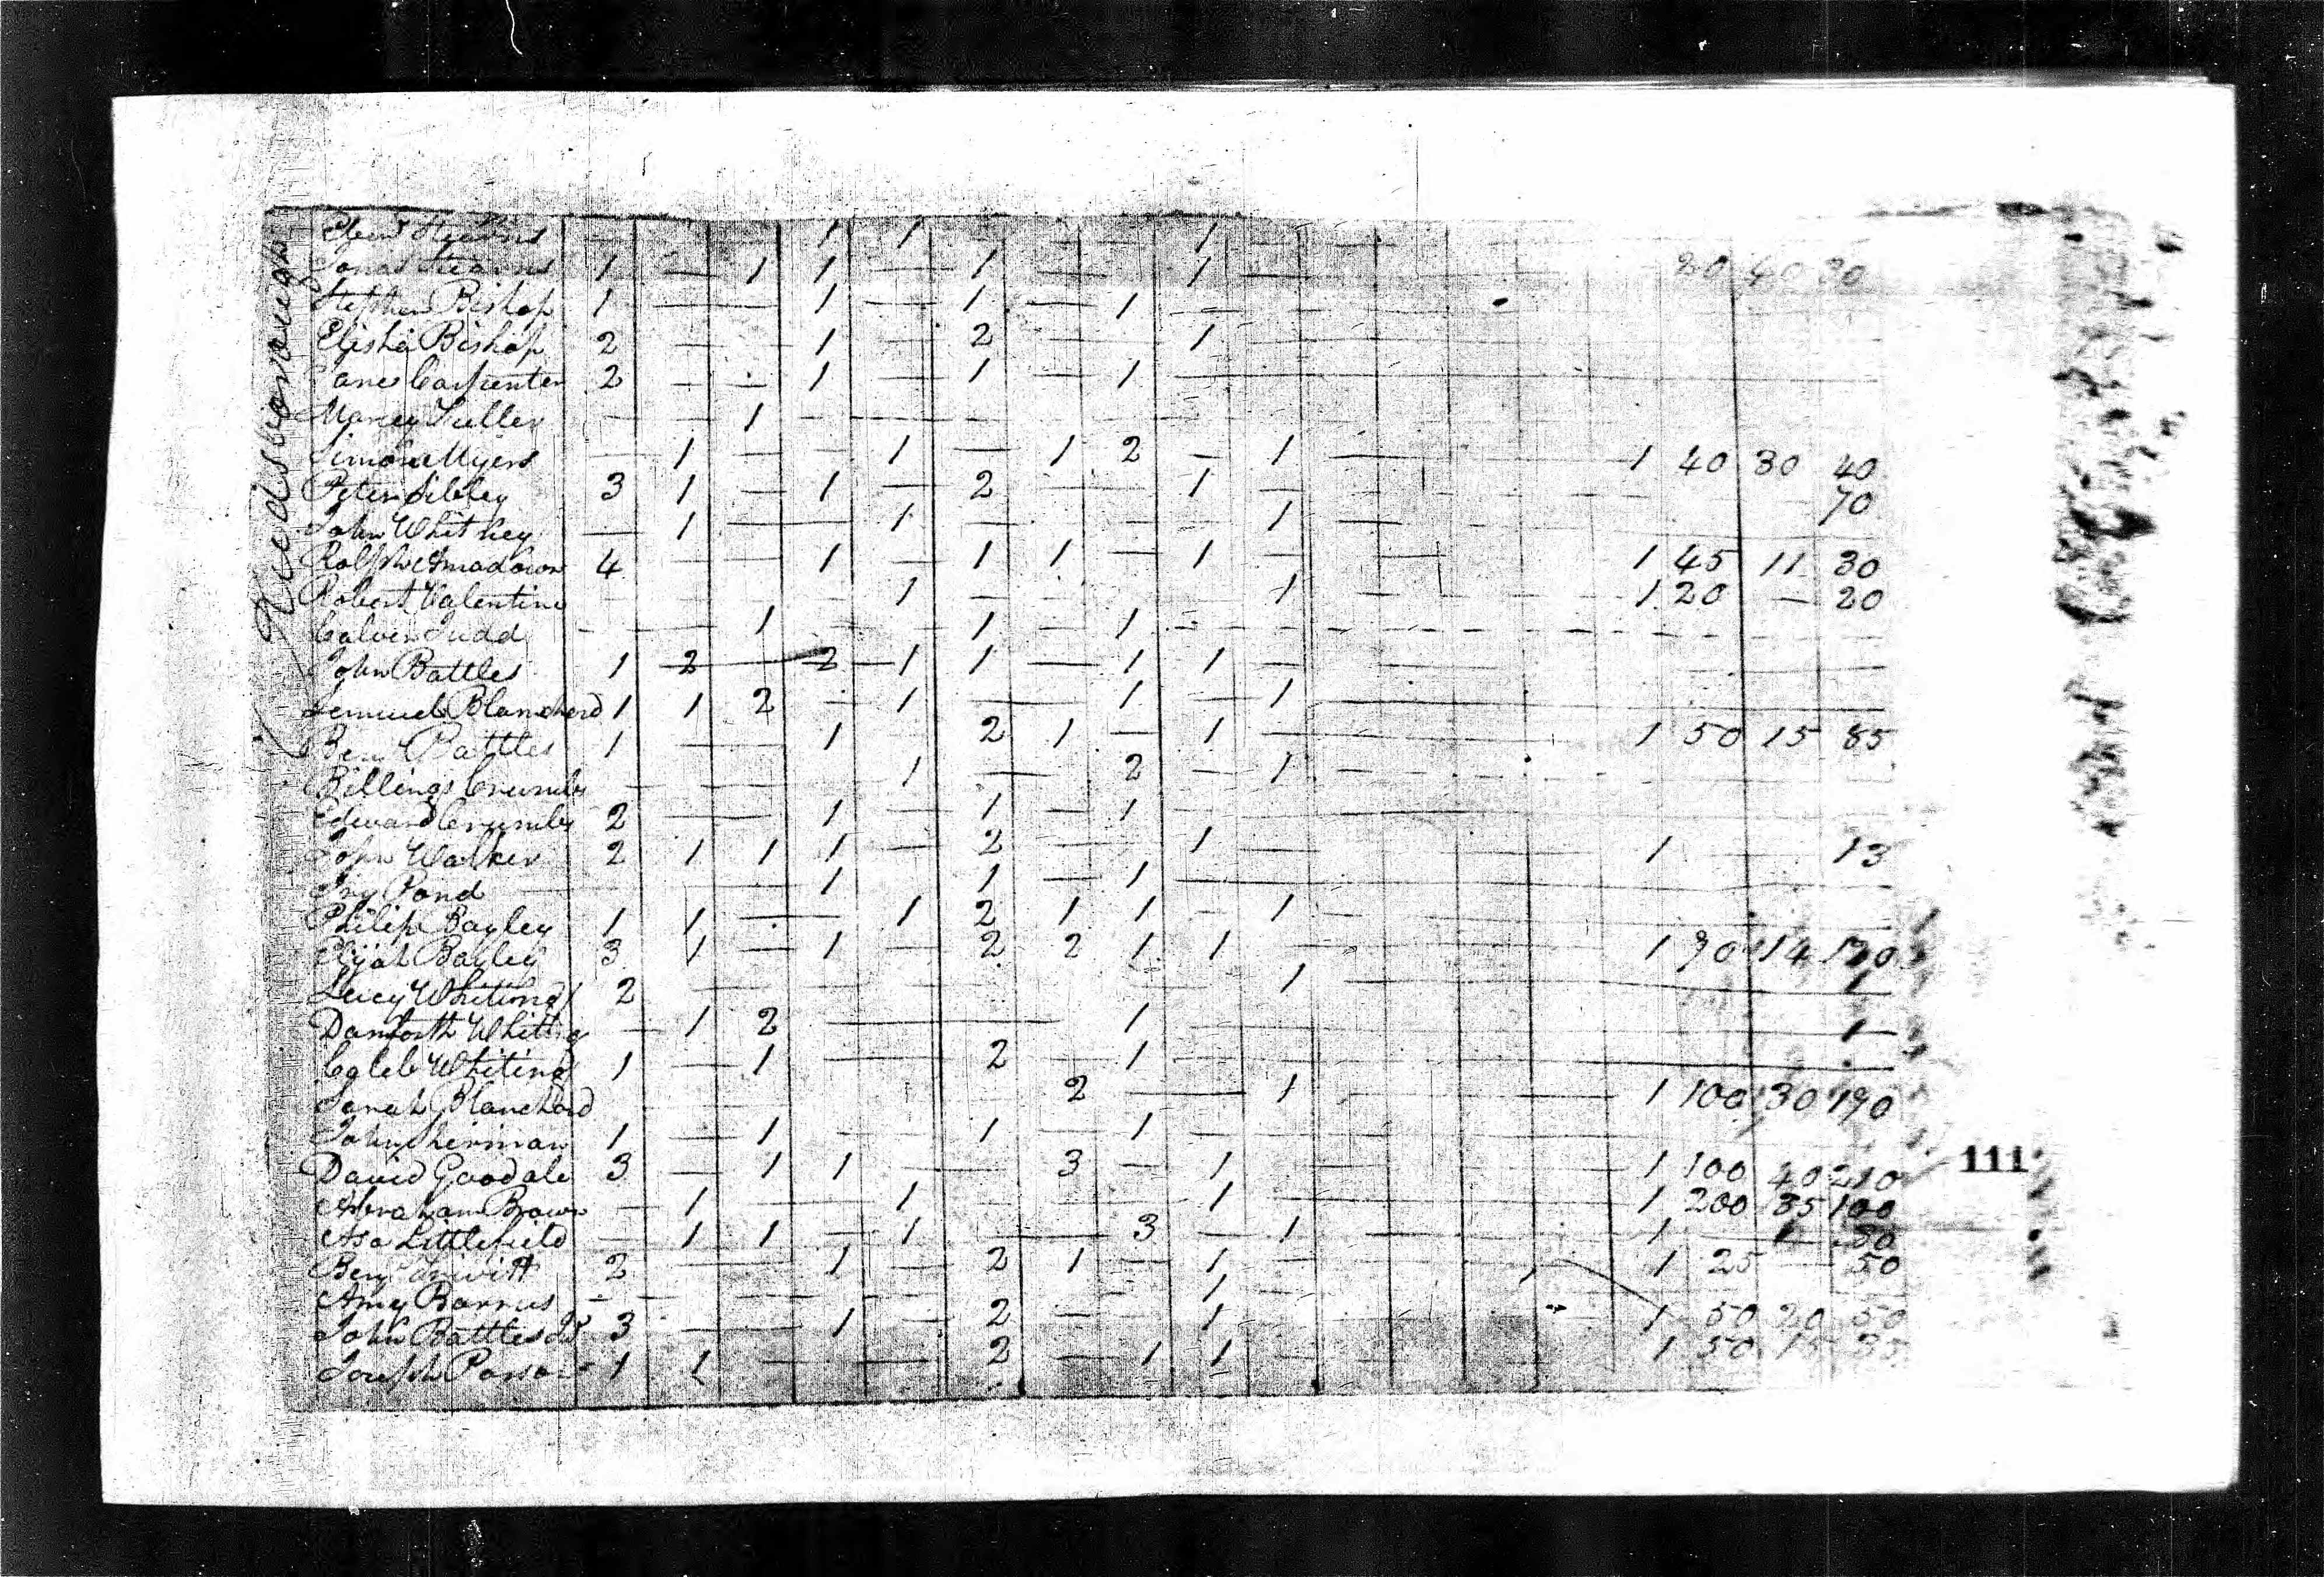 Readsborough
Eben Stearns 1 1 1
Jonas Stearns 1 — 1 1 — 1 1 20 40 30
Stephen Bishop 1 — 1 — 1 — 1
Elisha Bishop 2 — 1 2 — 1
Carpenter 2 — 1 — 1 — 1
Fuller — 1 —
Simon Myers — 1 — 1 — 1 2 — 1 — 1 40 30 40
Peter Sibley 3 1 — 1 — 2 — 1 — 70
John Whitney — 1 — 1 — 1 —
Ralph Amadown 4 — 1 — 1 1 — 1 — 1 45 11 30
Robert Valentine 1 1 — 1 20 — 20
Calvin Judd — 1 — 1 — 1 —
John Battles 1 2 — 2 — 1 1 — 1 1 —
Lemuel Blancherd 1 1 2 — 1 — 1 — 1 —
Ben Battles 1 — 1 2 1 — 1 — 1 50 15 85
Billings Crumby 1 — 2 — 1 —
Edward Crumby 2 — 1 — 1 — 1 —
John Walker 2 1 1 1 — 2 — 1 — 1 — 13
Ivy Pond — 1 1 — 1 —
Philip Bayley 1 1 — 1 2 1 1 — 1 —
Elijah Bayley 3 1 — 1 — 2 2 1 1 — 1 90 14 120
Lucy Whiting 2 — 1 — 1
Danforth Whiting — 1 2 — 1 — 1
Caleb Whiting 1 — 1 — 2 — 1 —
Sarah Blanchard 2 — 1 — 1 100 30 190
John Sherman 1 — 1 — 1 — 1 —
David Goodale 3 — 1 1 — 3 — 1 — 1 100 40 210
111
Abraham Brown — 1 — 1 — 1 — 1 200 35 100
Asa Littlefield — 1 1 — 1 — 3 — 1 — 1 — 1 30
Benj Trewitt 2 — 1 — 2 1 — 1 — 1 25 — 50
Amy Barrus — 1
John Battles Jr 3 — 1 — 2 — 1 1 50 20 50
Joseph 1 1 — 2 — 1 1 1 50 15 35